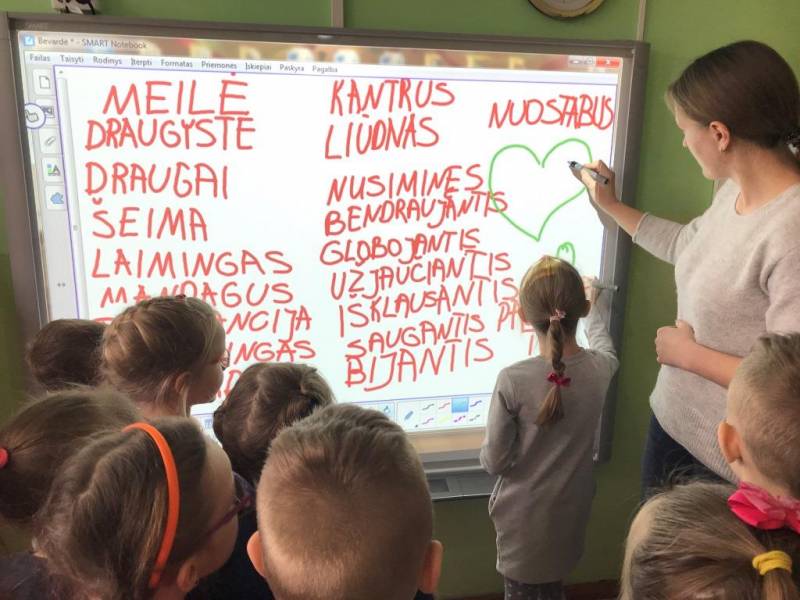 Bevardė * - SMART Notebook
Failas Taisyti Rodinys Įterpti Formatas Priemonės Įskiepiai Paskyra Pagalba
MEILĖ
DRAUGYSTĖ
DRAUGAI
ŠEIMA
LAIMINGAS
MANDAGUS
KANTRUS
LIŪDNAS
NUSIMINĘS
BENDRAUJANTIS
GLOBOJANTIS
UŽJAUČIANTIS
IŠKLAUSANTIS
SAUGANTIS
BIJANTIS
NUOSTABUS